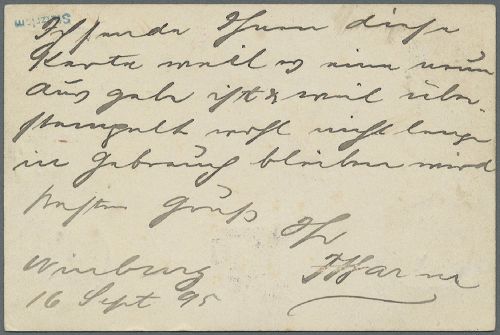 Ich sende Ihnen diese
Karte weil es eine neue
Ausgabe ist & weil über-
stempelt wohl nicht lange
in Gebrauch bleiben wird
Besten Gruß
Ihr
Winburg
16 Sept 95